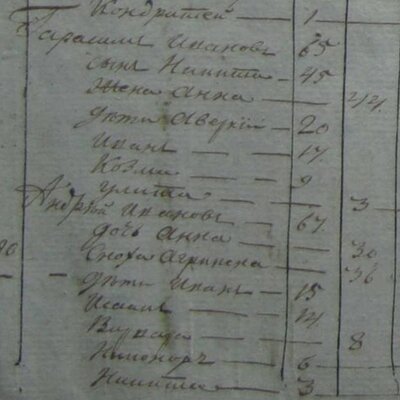 Кондратей — 1
Герасимъ Ивановъ 65
сынъ Никита — 45
Жена Анна — 44
дѣти Аверкiй — 20
Иванъ — — — 17
Козма — — — 9
Улита — — — 3
Андрей Ивановъ 67
дочь Анна — — 30
Сноха Агрипена — 36
дѣти Иванъ — 15
Исаакъ — — 14
— — 8
Никоноръ — 6
Никита — — 3